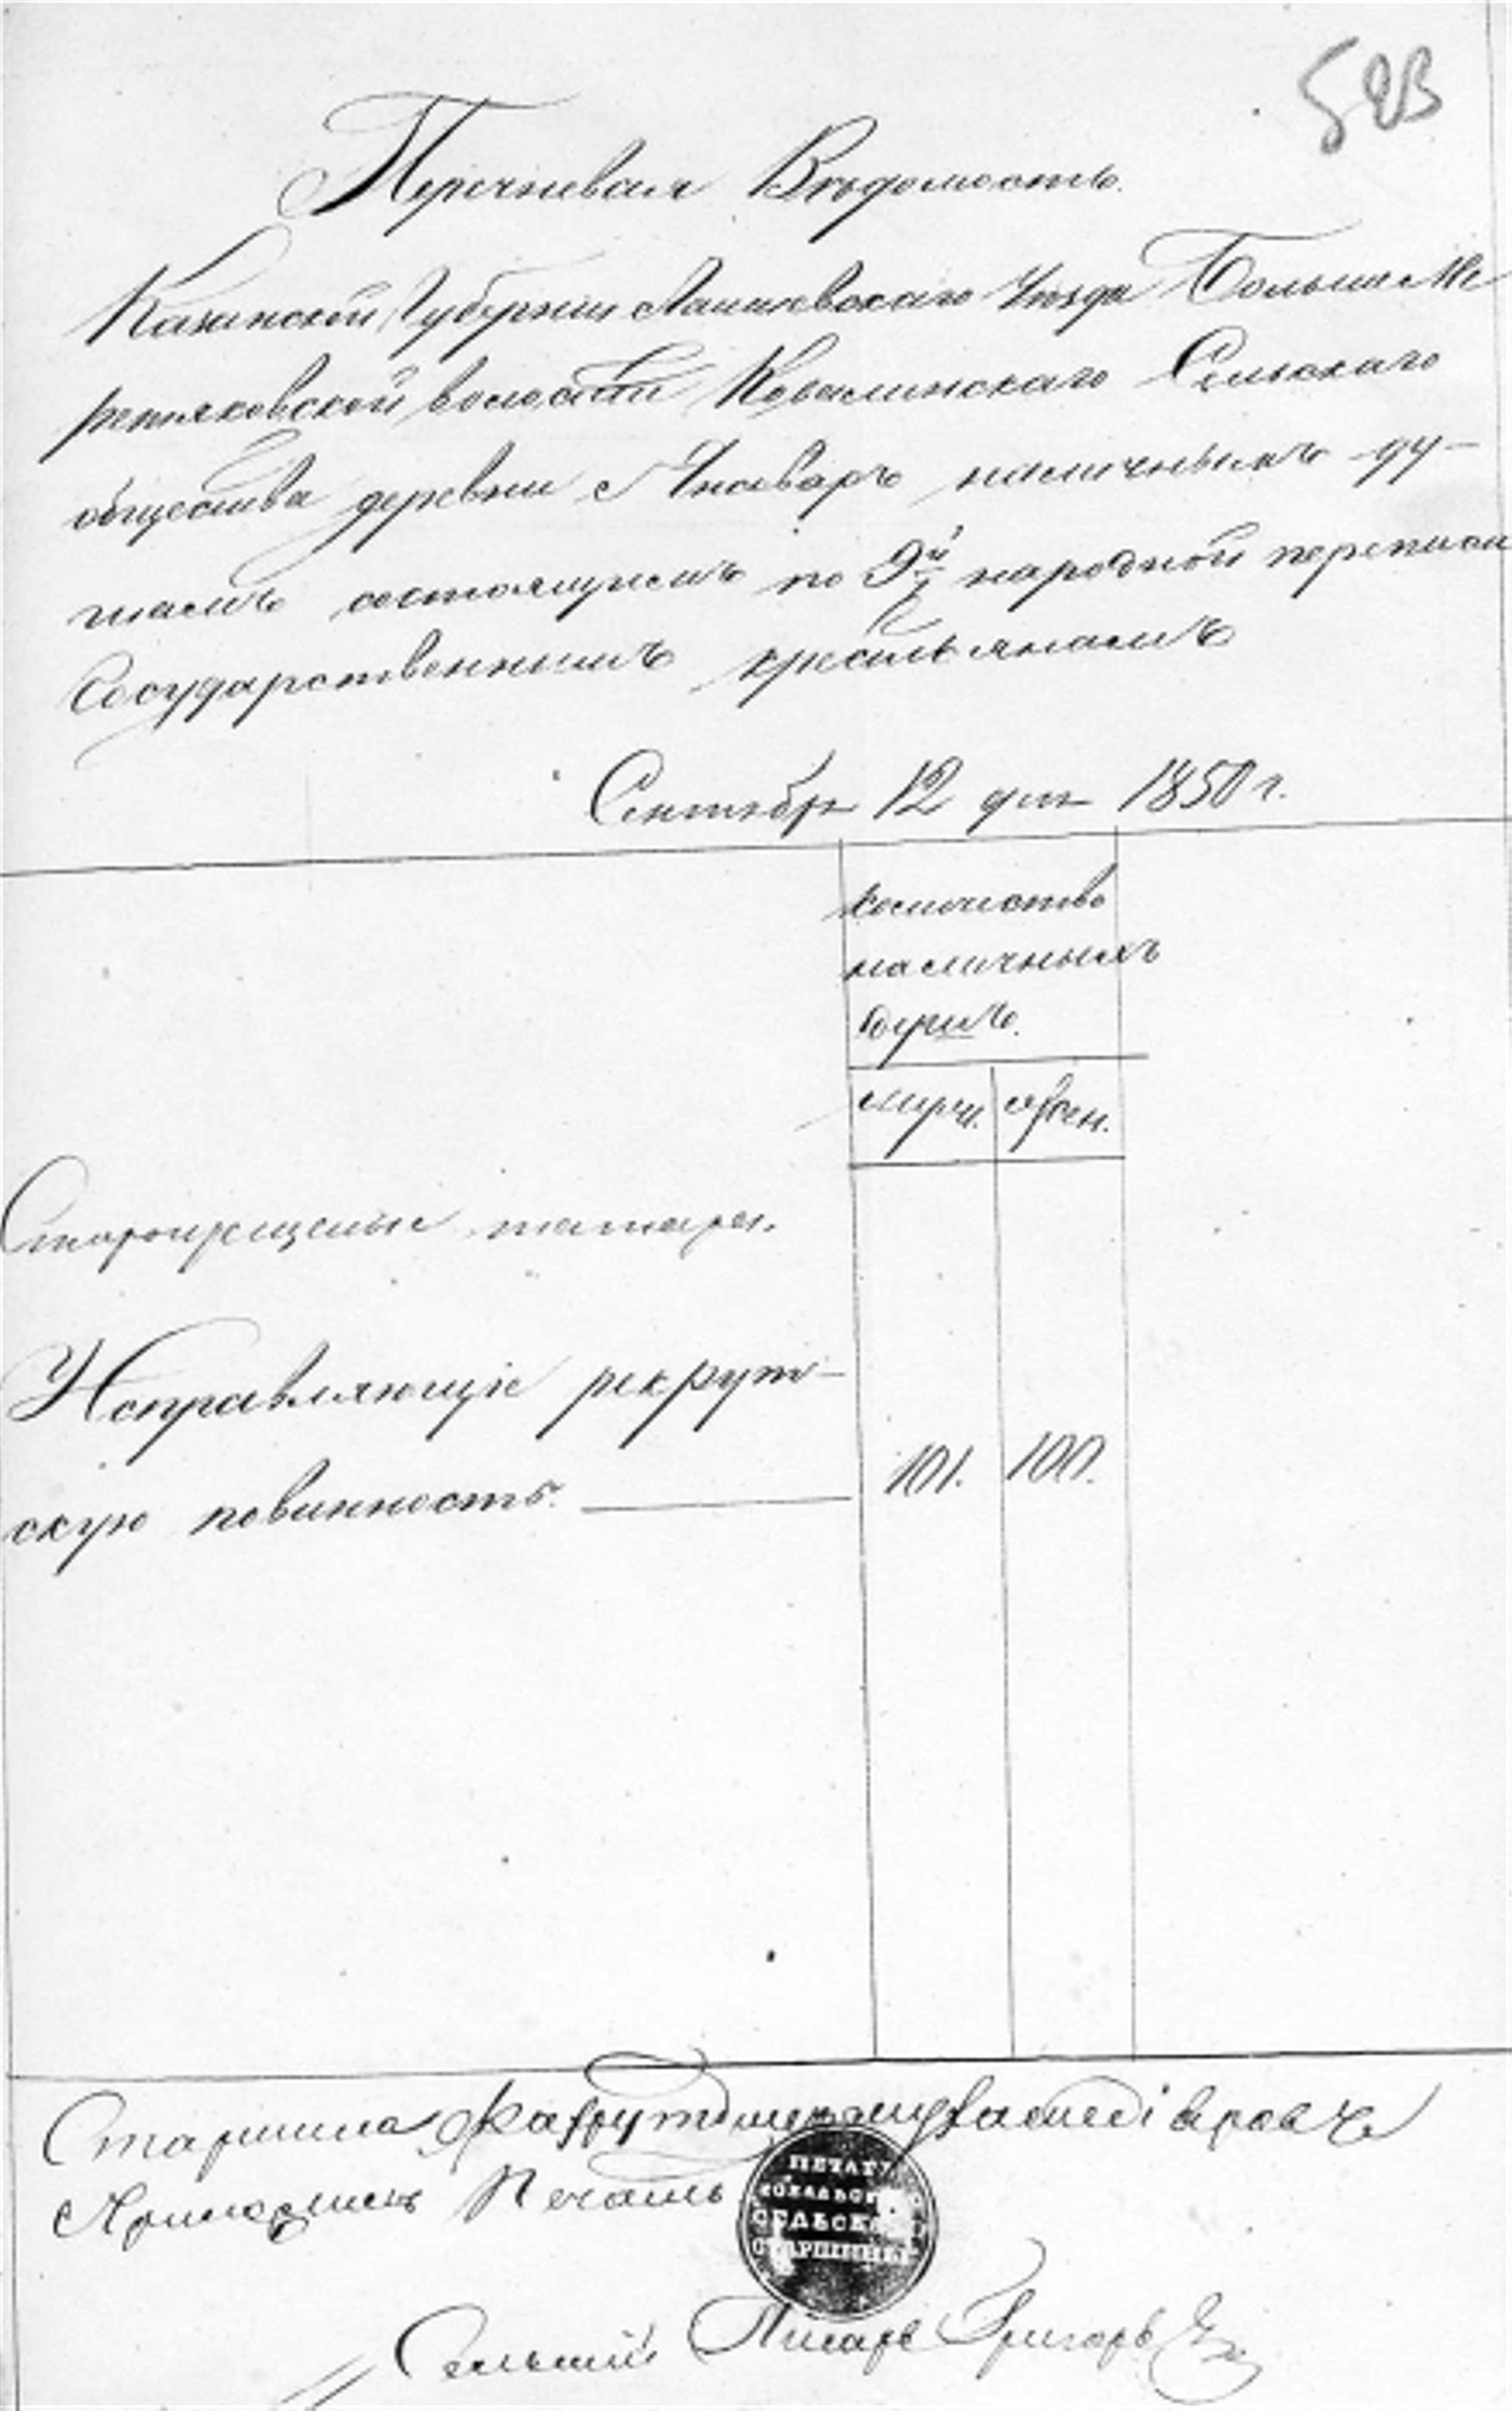 523
Перечневая Вѣдомость.
Казанской Губерніи Лаишевскаго Уѣзда Больше Ме
ретяковской волости Ковалинскаго Сельскаго
общества деревни Янсеваръ наличнымъ ду-
шамъ состоящимъ по 9й народной переписи
Государственнымъ крестьянамъ
Сентябр 12 дня 1850 г.
количество
наличныхъ
душъ.
муж. жен.
Старокрещеные татары.
Исправляющіе рекрут-
скую повинность. 101. 100.
Старшина
Приложилъ Печать
ПЕЧАТЬ
СЕЛЬСКА
СТАРШИНЫ
Сельскій Писарь Григорь